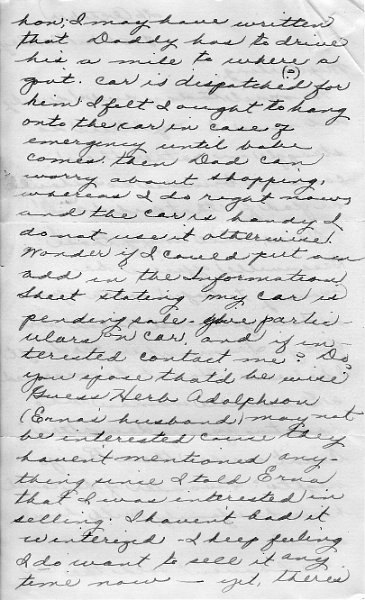 hon; I may have written
that Daddy has to drive
his a mile to where a
govt. car is dispatched for (?)
him I felt I ought to hang
onto the car in case of
emergency until babe
comes, then Dad can
worry about shopping,
whereas I do right now,
and the car is handy I
do not use it otherwise.
Wonder if I could put an
add in the Information
Sheet stating my car is
pending sale - give partic
ulars on car, and if in-
terested contact me? Do
you spose that'd be wise?
Guess Herb Adolphson
(Erna's husband) may not
be interested cause they
havent mentioned any-
thing since I told Erna
that I was interested in
selling. I havent had it
winterized - I keep feeling
I do want to sell it any
time now — yet, theres